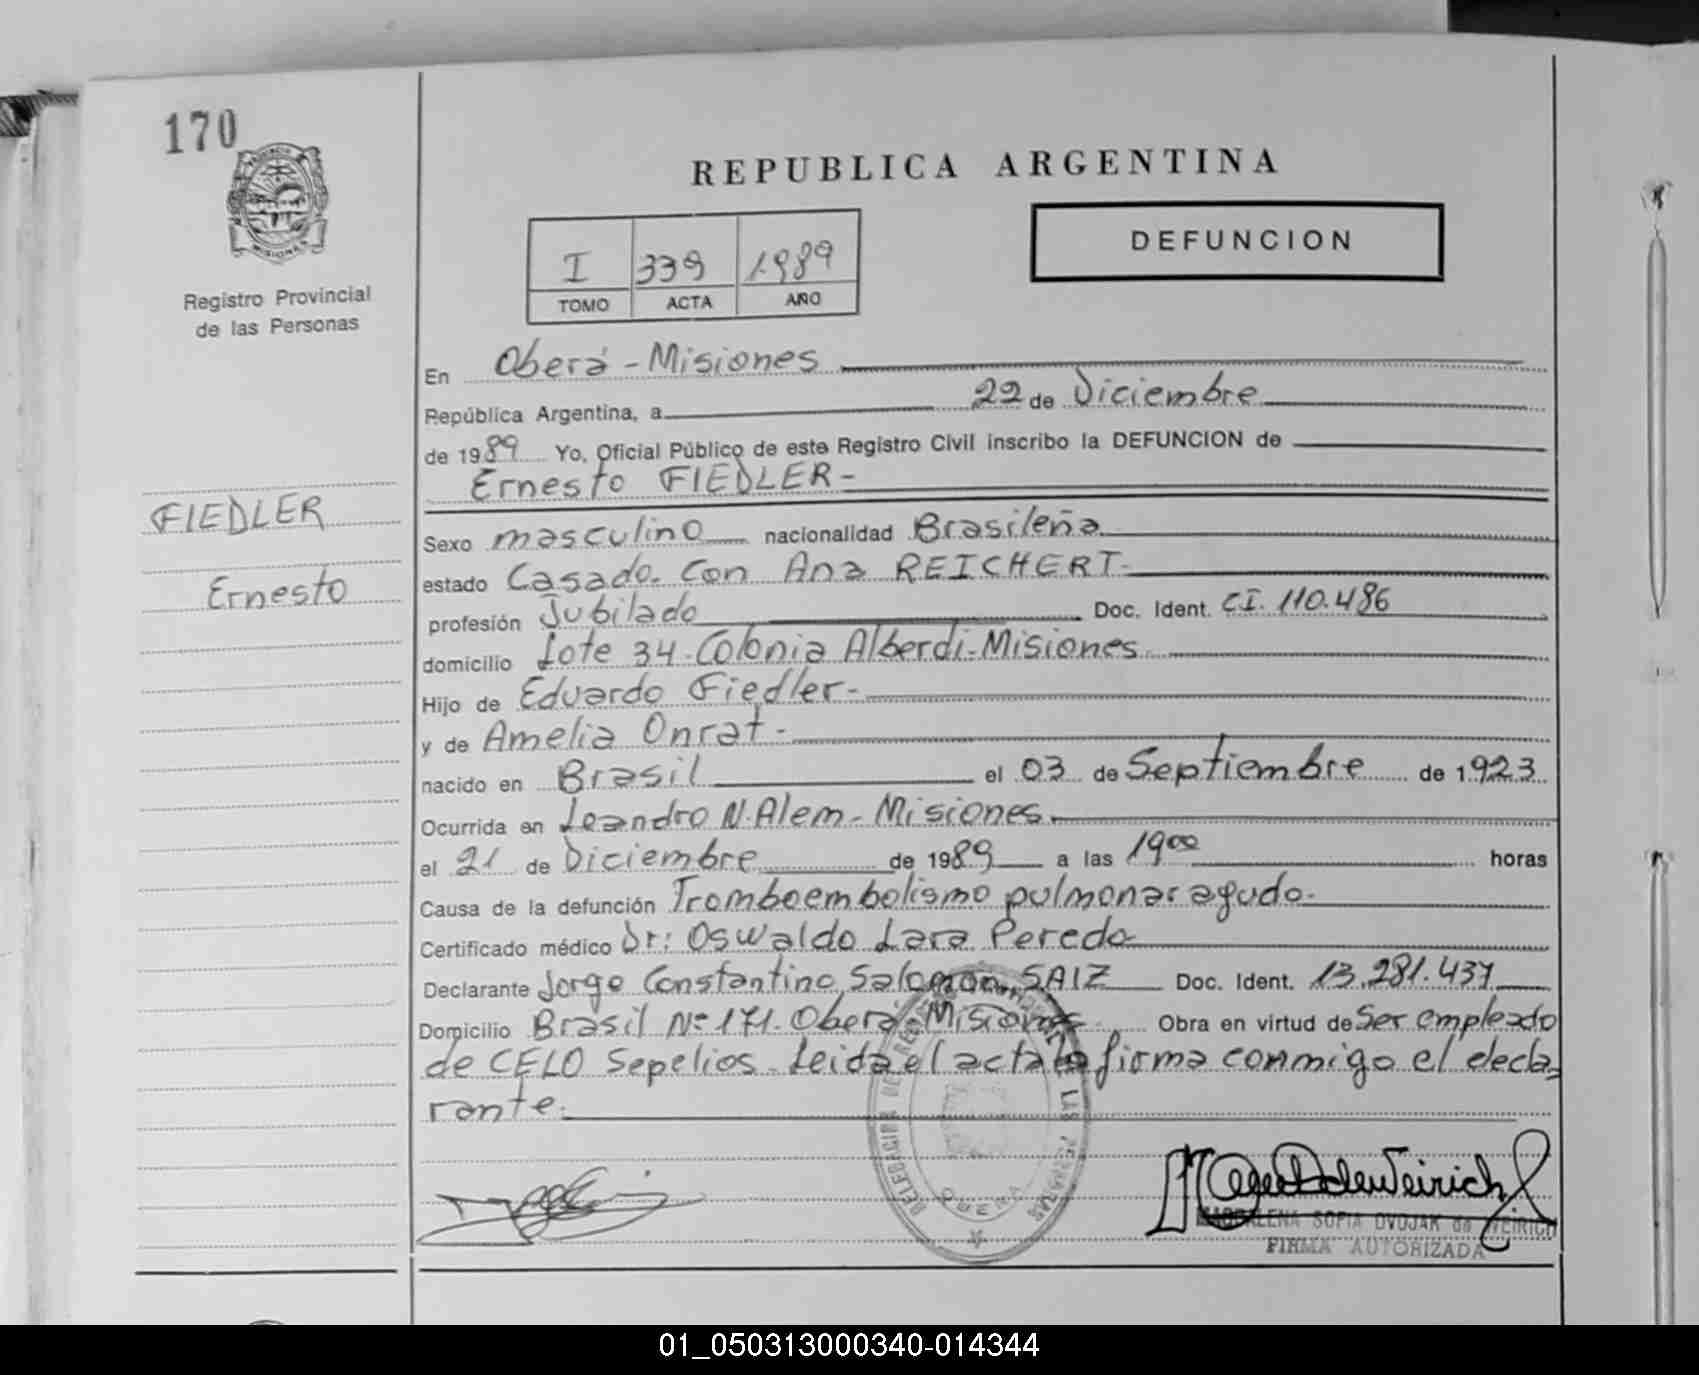 170
PROVINCIA
MISIONES
Registro Provincial
de las Personas
REPUBLICA ARGENTINA
I 339 1989
TOMO ACTA AÑO
DEFUNCION
En Oberá - Misiones
República Argentina, a 22 de Diciembre
de 1989 Yo, Oficial Público de este Registro Civil inscribo la DEFUNCION de
Ernesto FIEDLER -
FIEDLER
Ernesto
Sexo masculino nacionalidad Brasileña
estado Casado. Con Ana REICHERT -
profesión Jubilado Doc. Ident. C.I. 110.486
domicilio Lote 34 - Colonia Alberdi - Misiones
Hijo de Eduardo Fiedler -
y de Amelia Onrat -
nacido en Brasil el 03 de Septiembre de 1923
Ocurrida en Leandro N. Alem - Misiones
el 21 de Diciembre de 1989 a las 19 00 horas
Causa de la defunción Tromboembolismo pulmonar agudo -
Certificado médico Dr: Oswaldo Lara Peredo
Declarante Jorge Constantino Salomon SAIZ Doc. Ident. 13.281.437
Domicilio Brasil Nº 171. Oberá - Misiones Obra en virtud de Ser empleado
de CELO Sepelios - Leida el acta la firma conmigo el decla
rante.
DELEGACION DE LAS PERSONAS
OBERA
MAGDALENA SOFIA DVOJAK de WEIRICH
FIRMA AUTORIZADA
01_050313000340-014344